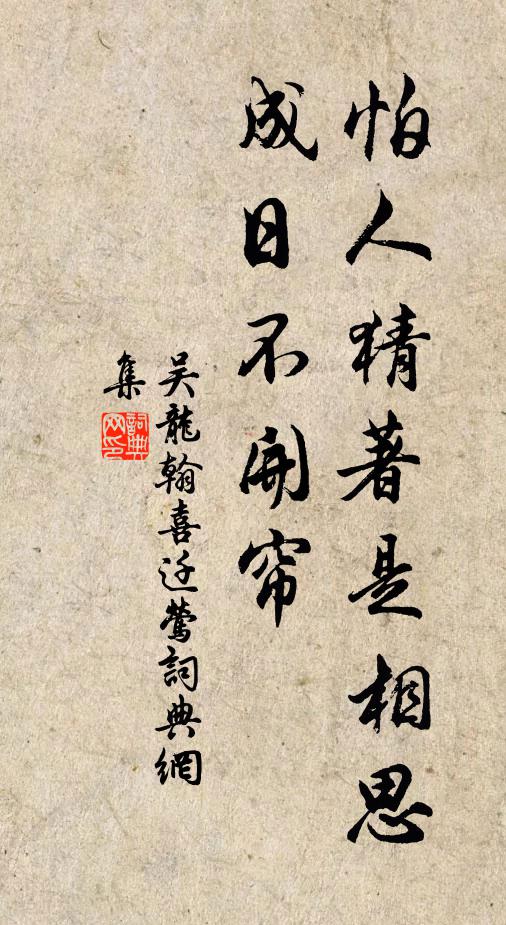 怕人猜著是相思
成日不開帘
吴龍翰喜迁鶯詞典網
集
詞典
网印